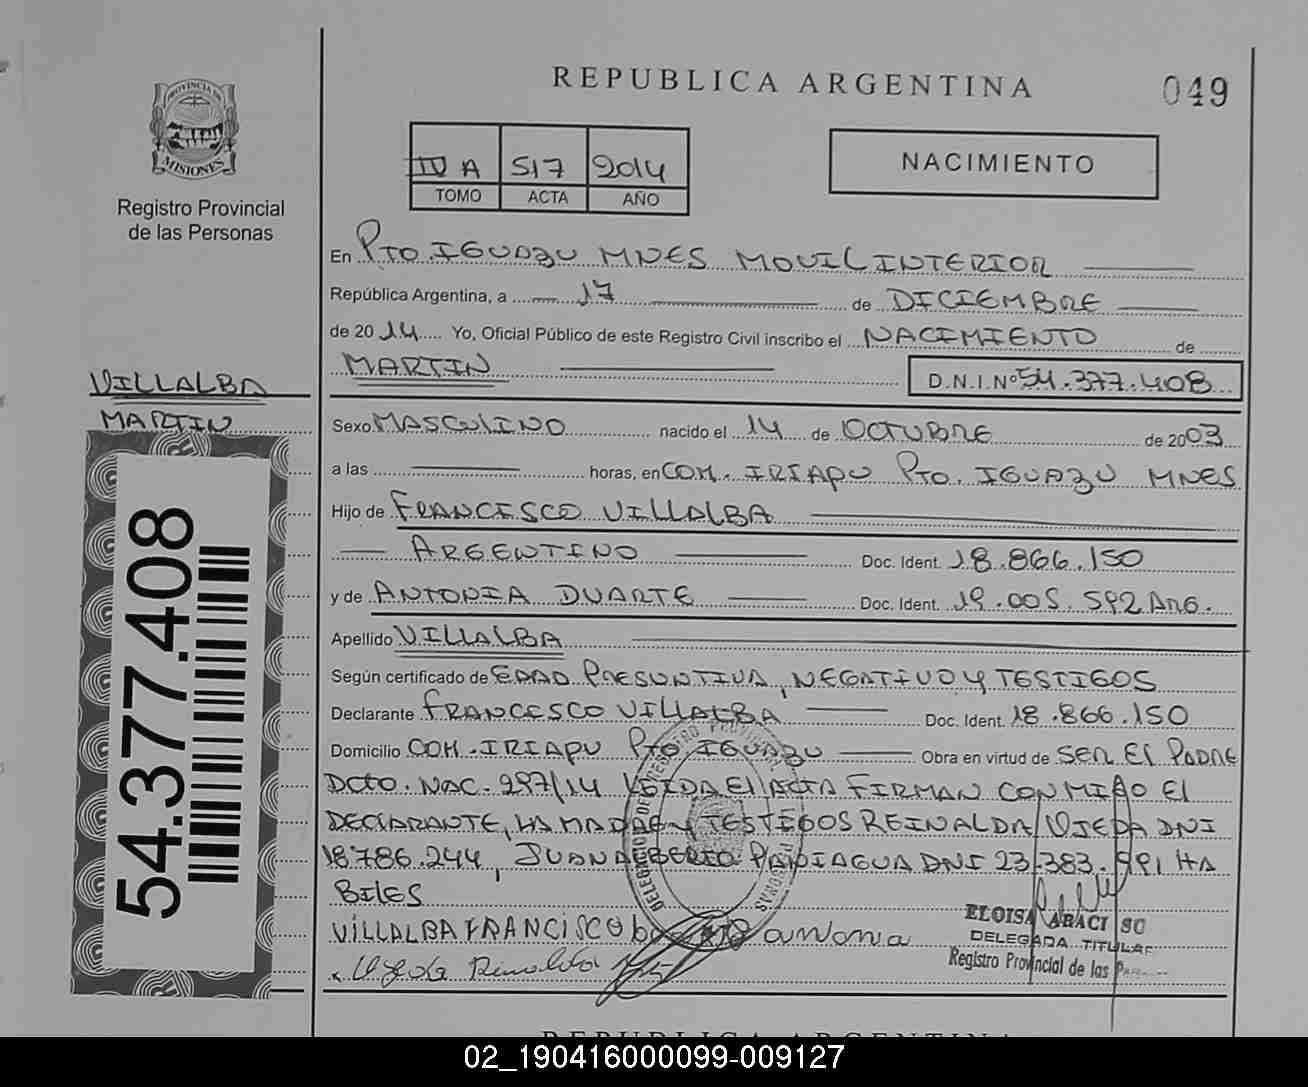 REPUBLICA ARGENTINA
049
PROVINCIA DE
MISIONES
Registro Provincial
de las Personas
IV A 517 2014
TOMO ACTA AÑO
NACIMIENTO
En PTO. IGUAZU MNES MOVIL INTERIOR
República Argentina, a 17 de DICIEMBRE
de 2014 Yo, Oficial Público de este Registro Civil inscribo el NACIMIENTO de
MARTIN
D.N.I. Nº 54.377.408
VILLALBA
MARTIN
54.377.408
Sexo MASCULINO nacido el 14 de OCTUBRE de 2003
a las horas, en COM. IRIAPU PTO. IGUAZU MNES
Hijo de FRANCISCO VILLALBA
ARGENTINO Doc. Ident. 18.866.150
y de ANTONIA DUARTE Doc. Ident. 19.005.592 ARG.
Apellido VILLALBA
Según certificado de EDAD PRESUNTIVA, NEGATIVO Y TESTIGOS
Declarante FRANCISCO VILLALBA Doc. Ident. 18.866.150
Domicilio COM. IRIAPU PTO IGUAZU Obra en virtud de SER EL PADRE
DCTO. NAC. 297/14 LEIDA EL ACTA FIRMAN CONMIGO EL
DECLARANTE, LA MADRE Y TESTIGOS REINALDA OJEDA DNI
18786.244, JUAN ALBERTO DNI 23.383.991 HA
BILES
VILLALBA FRANCISCO antonia
ELOISA ARACI SO
DELEGADA TITULAR
Registro Provincial de las
REPUBLICA ARGENTINA
02_190416000099-009127